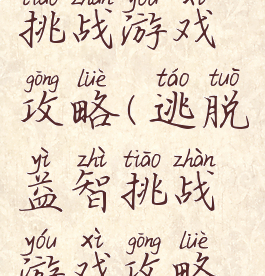 tiǎo zhàn yóu xì
挑战游戏
gōng lüè táo tuō
攻略(逃脱
yì zhì tiāo zhàn
益智挑战
yóu xì gōng lüè
游戏攻略